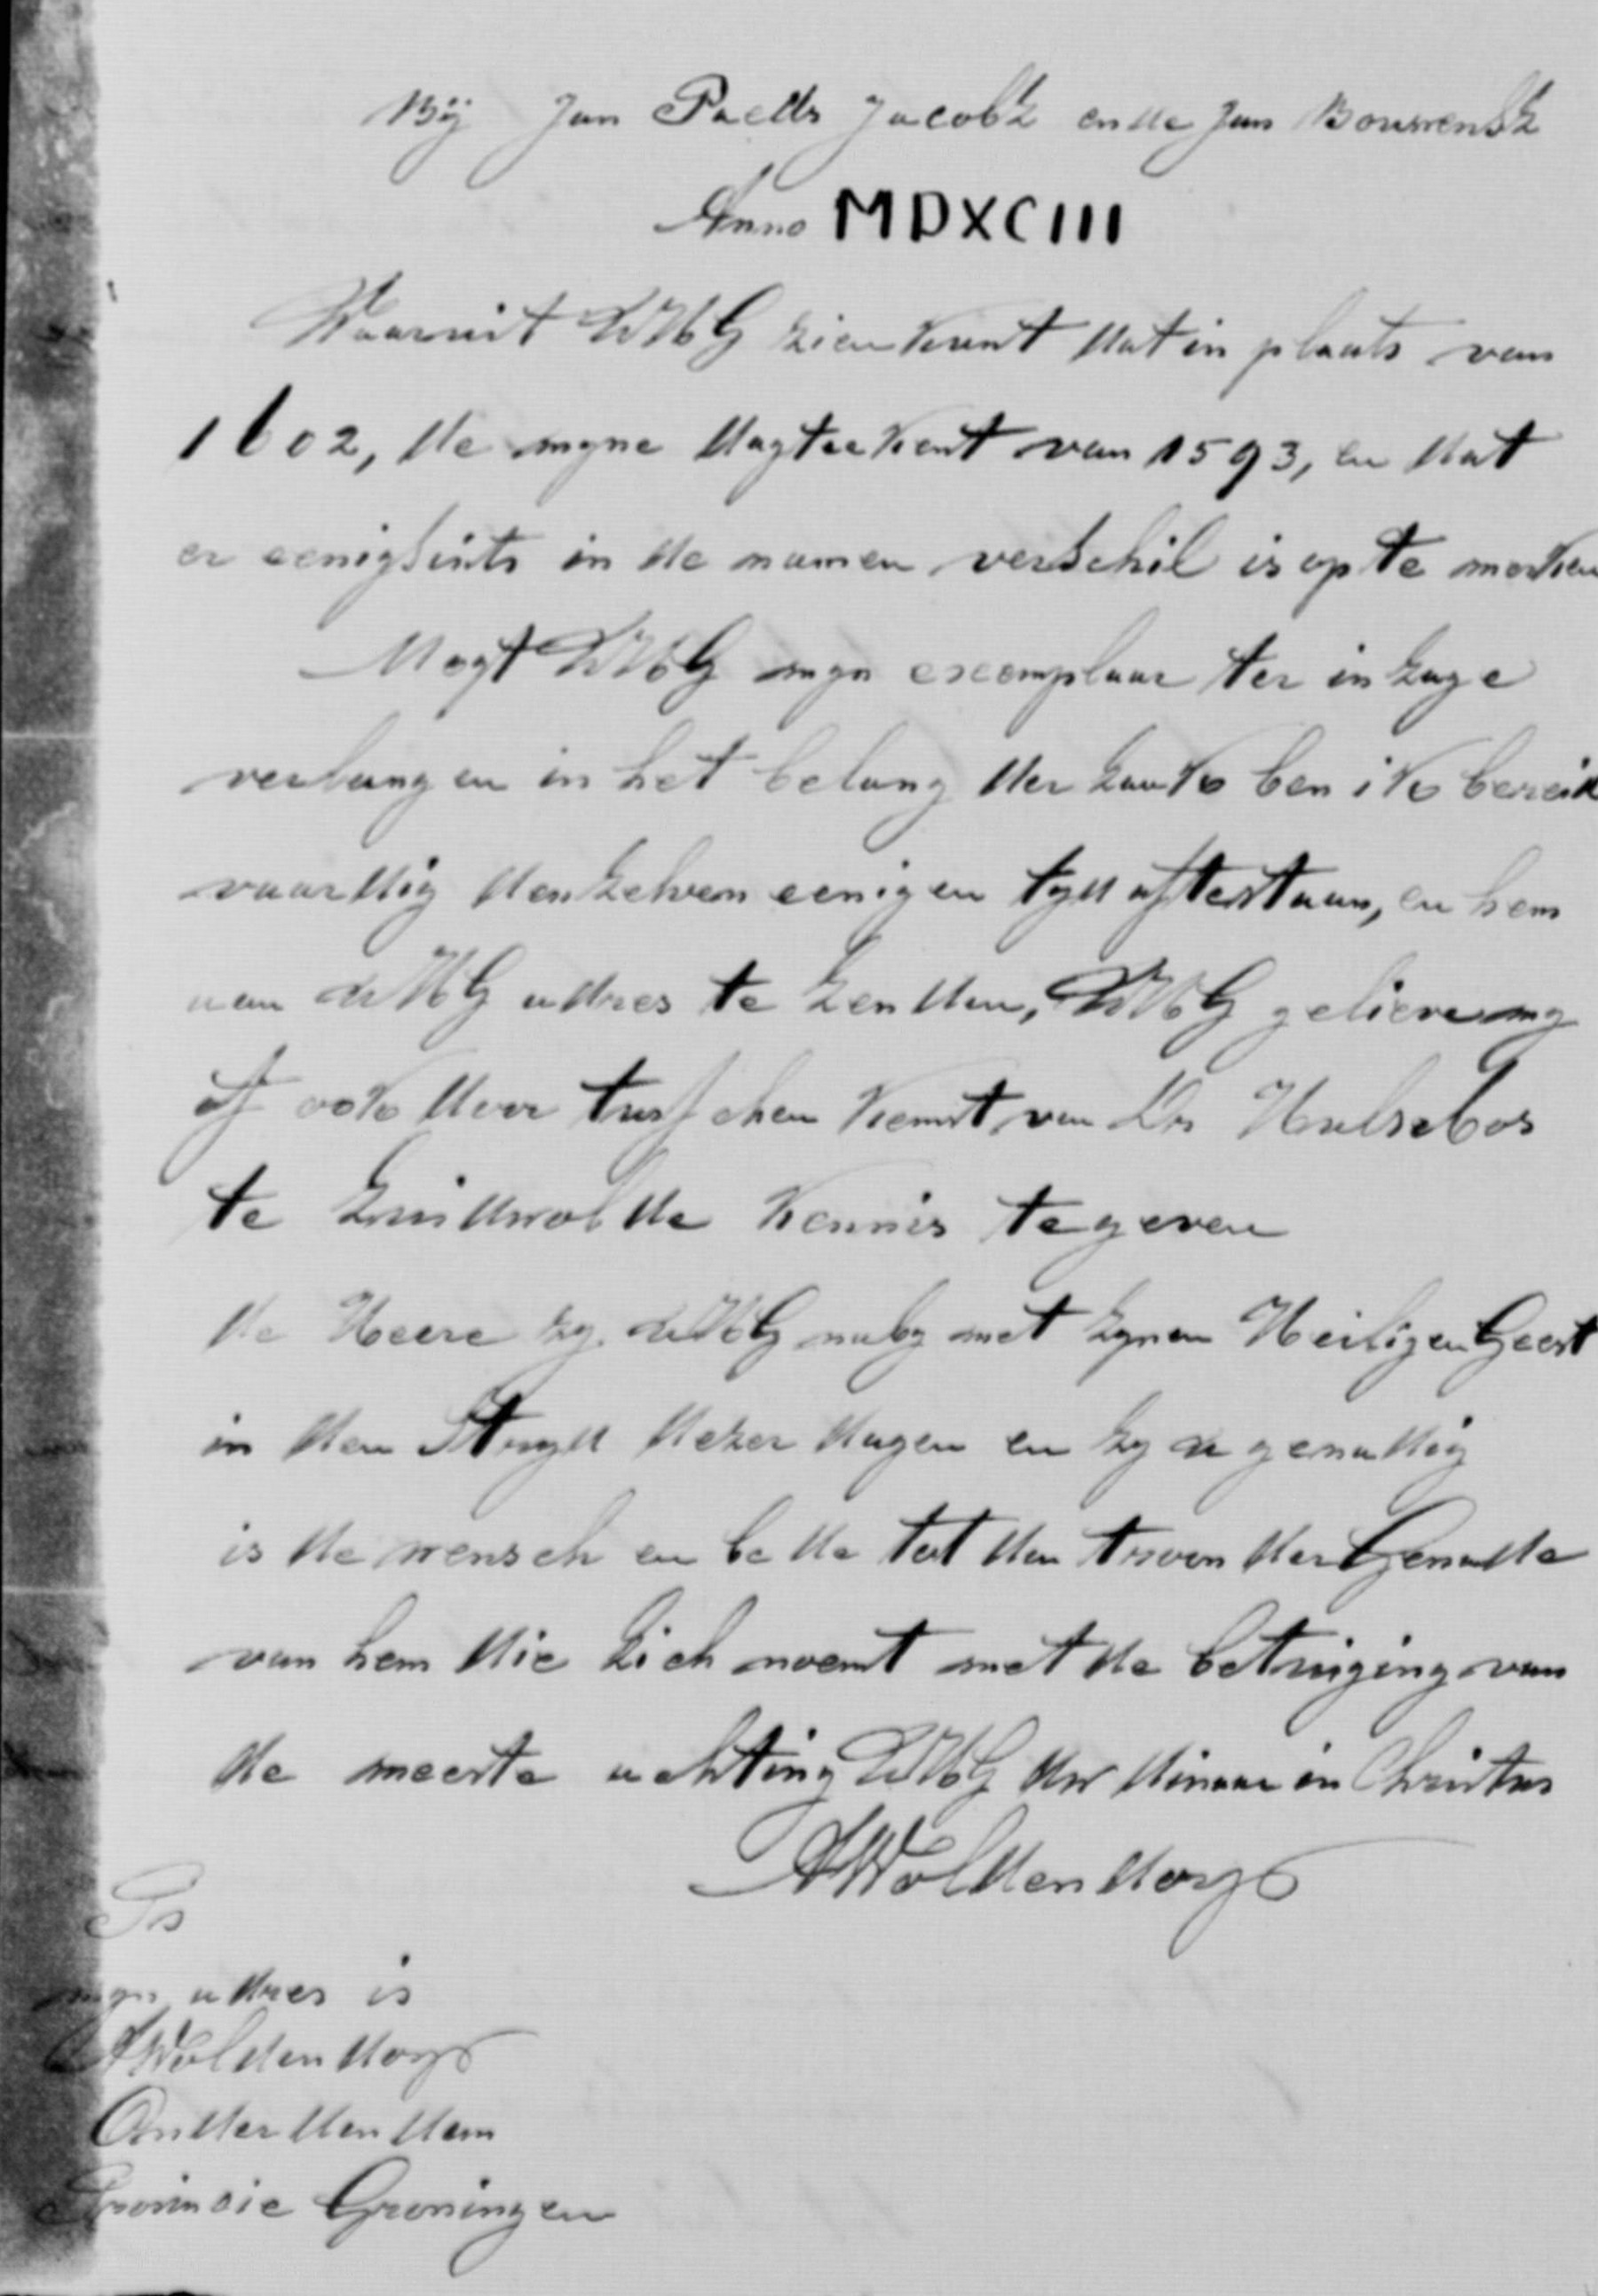 By Jan Paedts Jacobsz ende Jan Bouwensz
Anno MDXCIII
Waaruit UWEG zien kunt dat in plaats van
1602, de myne dagteekent van 1593, en dat
er eenigsints in de namen verschil is op te merken
Mogt UWEG myn exemplaar ter inzage
verlangen in het belang der zaak ben ik bereid
vaardig denzelven eenigen tyd aftestaan, en hem
aan UWEG adres te zenden, UWEG gelieve my
of ook door tusschen komst van Ds Hulsebos
te Zuidwolde kennis te geven
de Heere zy UWEG naby met zynen Heiligen Geest
in den Stryd dezer dagen en zy U genadig
is de wensch en bede tot den troon der Genade
van hem die zich noemt met de betuiging van
de meeste achting UWEG dw dinaar in Christus
AWoldendorp
Ps
myn adres is
AWoldendorp
Onderdendam
Provincie Groningen